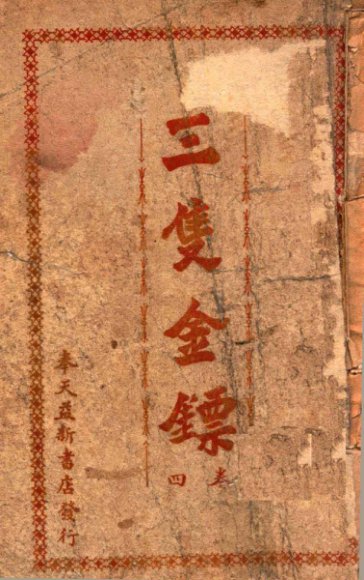 三隻金鏢
卷四
奉天益新書店發行